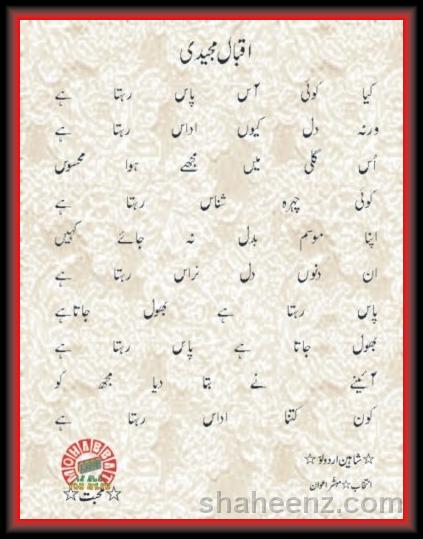 اقبال مجیدی
کیا کوئی آس پاس رہتا ہے
ورنہ دل کیوں اداس رہتا ہے
اُس گلی میں مجھے ہوا محسوس
کوئی چہرہ شناس رہتا ہے
اپنا موسم بدل نہ جائے کہیں
ان دنوں دل نراس رہتا ہے
پاس رہتا ہے بُھول جاتا ہے
بُھول جاتا ہے پاس رہتا ہے
آئینے نے بتا دیا مجھ کو
کون کتنا اداس رہتا ہے
☆ شاہین اردو لو ☆
انتخاب ☆ مبشر اعوان
MOHABBAT
☆ محبت ☆
shaheenz.com